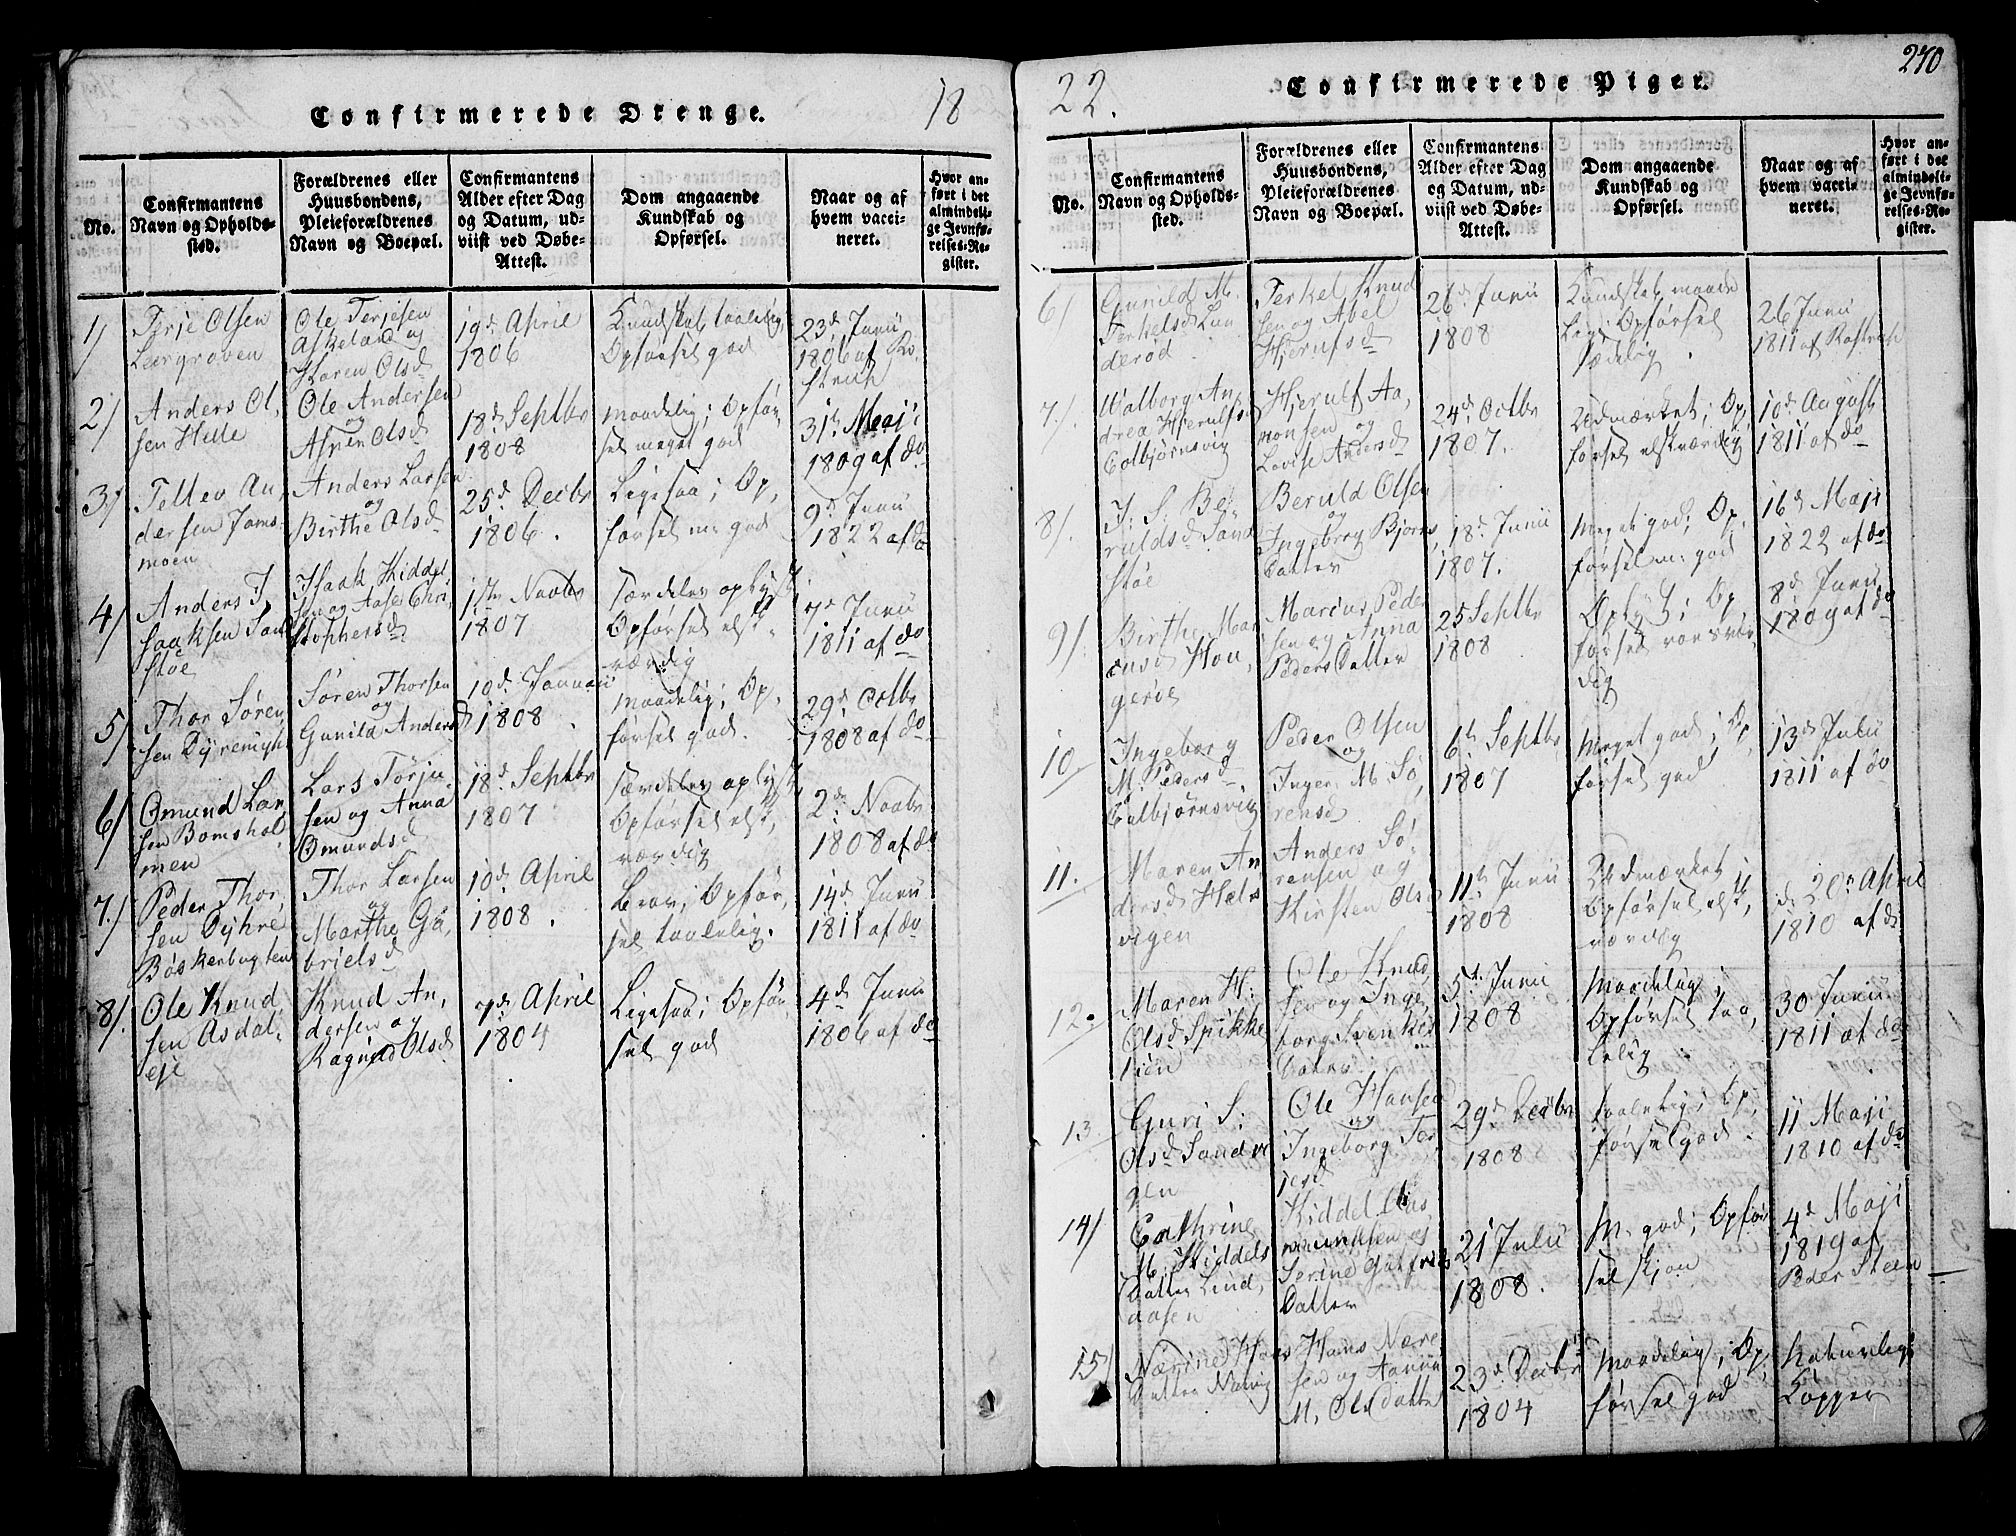 18
Confirmerede Drenge.
No.
Confirmantens
Navn og Opholds-
sted.
Forældrenes eller
Huusbondens,
Pleieforældrenes
Navn og Boepæl.
Confirmantens
Alder efter Dag
og Datum, ud-
viist ved Døbe-
Attest.
Dom angaaende
Kundskab og
Opførsel.
Naar og af
hvem vacci-
neret.
Hvor an-
ført i det
almindeli-
ge Jevnfø-
relses-Re-
gister.
1)
Terje Olsen
Leergraven
Ole Terjesen
Askeland og
Karen Olsd
19d April
1806
Kundskab taalelig
Opførsel god
23d Junii
1806 af Ro-
strup
2)
Anders Ol,
sen Helle
Ole Andersen
og
Asnen Olsd
18d Septbr
1808
maadelig; Opfør
sel meget god
31th Maji
1809 af do
3)
Tellev An,
dersen Joms-
moen
Anders Larsen
og
Birthe Olsd
25d Decbr
1806.
Ligesaa; Op,
førsel m: god
9d Junii
1822 af do
4)
Anders I,
saaksen Sand
støe
Isaak Kiddel
sen og Aase Chri,
stophersd
1ste Novbr
1807
særdeles oplyst;
Opførsel elsk-
værdig
7d Junii
1811 af do
5)
Thor Søren
sen Dyreniyhr
Søren Thorsen
og
Gunild Andersd
10d Januarii
1808.
maadelig; Op,
førsel god.
29d Octbr
1808 af do
6)
Omund Lar,
sen Bomshol
men
Lars Torju
sen og Anna
Omundsd
18d Septbr
1807
særdeles oplyst
Opførsel elsk,
værdig
2d Novbr
1808 af do
7)
Peder Thor,
sen Dyhre
Bøskerbugten
Thor Larsen
og
Marthe Ga,
brielsd
10d April
1808.
Brav; Opfør,
sel taalelig.
14d Junii
1811 af do
8)
Ole Knud
sen Asdal,
eje
Knud An,
dersen og
Ragnild Olsd
7d April
1804
Ligesaa; Opfør
sel god
4d Junii
1806 af do
22.
Confirmerede Piger.
270
No.
Confirmantens
Navn og Opholds-
sted.
Forældrenes eller
Huusbondens,
Pleieforældrenes
Navn og Boepæl.
Confirmantens
Alder efter Dag
og Datum, ud-
viist ved Døbe-
Attest.
Dom angaaende
Kundskab og
Opførsel.
Naar og af
hvem vacci-
neret.
Hvor an-
ført i det
almindeli-
ge Jevnfø-
relses-Re-
gister.
6)
Gunild M.
Terkelsd Lun
derød
Terkel Knud
sen og Abel
Hjerulfsd
26d Junii
1808
Kundskab maade
lig; Opførsel
sædelig.
26 Junii
1811 af Rostrup
7)
Walborg An,
drea Hjerulfsd
Colbjørnsvig
Hjerulf Aa,
ronsen og
Lovise Andersd
24d Octbr
1807.
Udmærket; Op,
førsel elskværdig
10d August
1811 af do
8)
I. S. Be,
ruldsd Sand
støe
Beruld Olsen
og
Ingeberg Bjorns
Datter
18d Junii
1807.
Meget god; Op,
førsel m: god
16d Maji
1822 af do
9)
Birthe Mar
cusd Hou,
gerøe
Marcus Peder
sen og Anna
Peders Datter
25 Septbr
1808
Oplyst; Op,
førsel roesvær
dig
8d Junii
1809 af do
10
Ingeborg
M. Pedersd
Colbjørnsvig
Peder Olsen
og
Inger M. Sø,
rensd
6th Septbr
1807
Meget god; Op,
førsel god
13d Julii
1811 af do
11.
Maren An
dersd Hels
vigen
Anders Sø,
rensen og
Kirsten Olsd
11th Junii
1808
Udmærket
Opførsel elsk,
værdig
d. 20d April
1810 af do
12.
Maren H:
Olsd Spikke
lien
Ole Knud,
sen og Inge,
borg Svenkes
Datter
5t Junii
1808
Maadelig;
Opførsel taa,
lelig
30 Junii
1811 af do
13
Guri S:
Olsd Sandvi
gen
Ole Hansen
og
Ingeborg Ter,
jesd
29d Decbr
1808
taalelig; Op,
førsel god
11 Maji
1810 af do
14)
Cathrine
M. Kiddels
Datter Lind,
aasen
Kiddel Aas,
mundsen og
Serine Gutfreds
Datter
21 Julii
1808.
M. god; Opfør
sel skjøn
4d Maji
1819 af
Peder Steen
15)
Nærine Hans
Datter Narvig
Hans Nære
sen og
M. Ols Datter
23d Decbr
1804
Maadelig; Op,
førsel god
Naturlige
Kopper